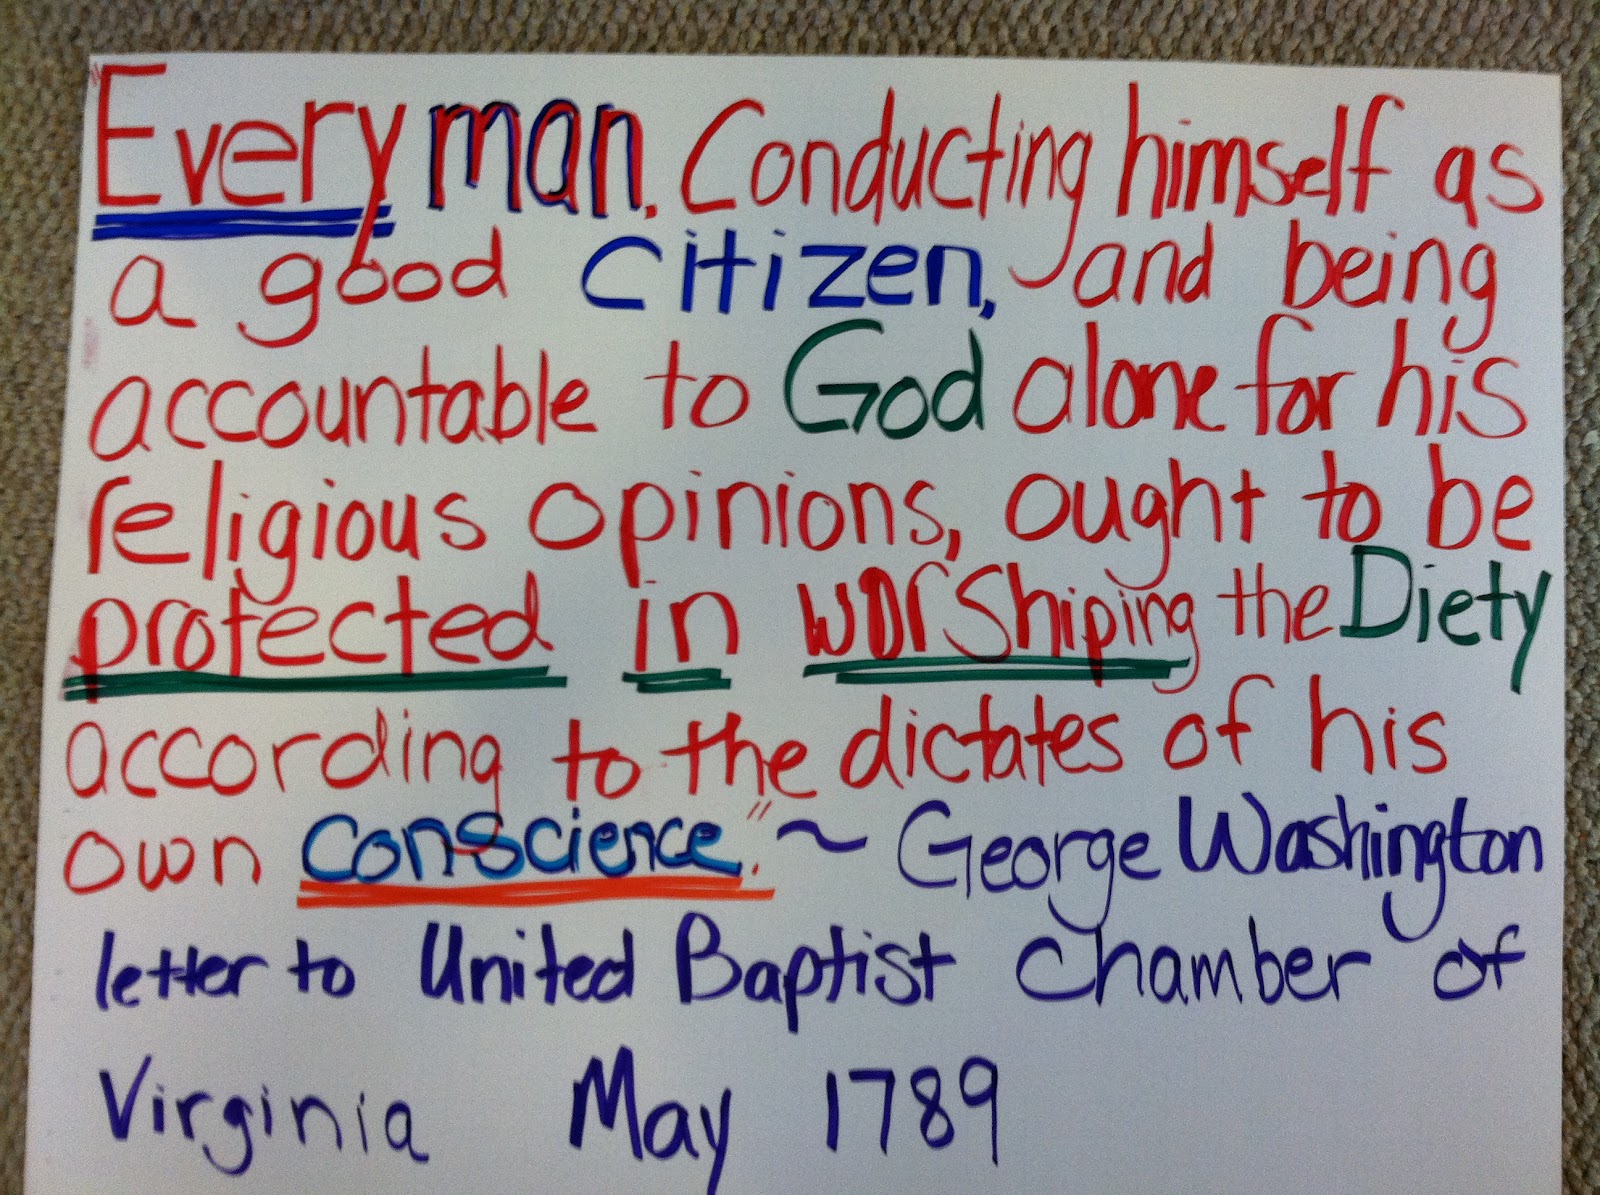 "Every man, Conducting himself as
a good citizen, and being
accountable to God alone for his
religious opinions, ought to be
protected in worshiping the Diety
according to the dictates of his
own conscience." ~ George Washington
letter to United Baptist Chamber of
Virginia May 1789